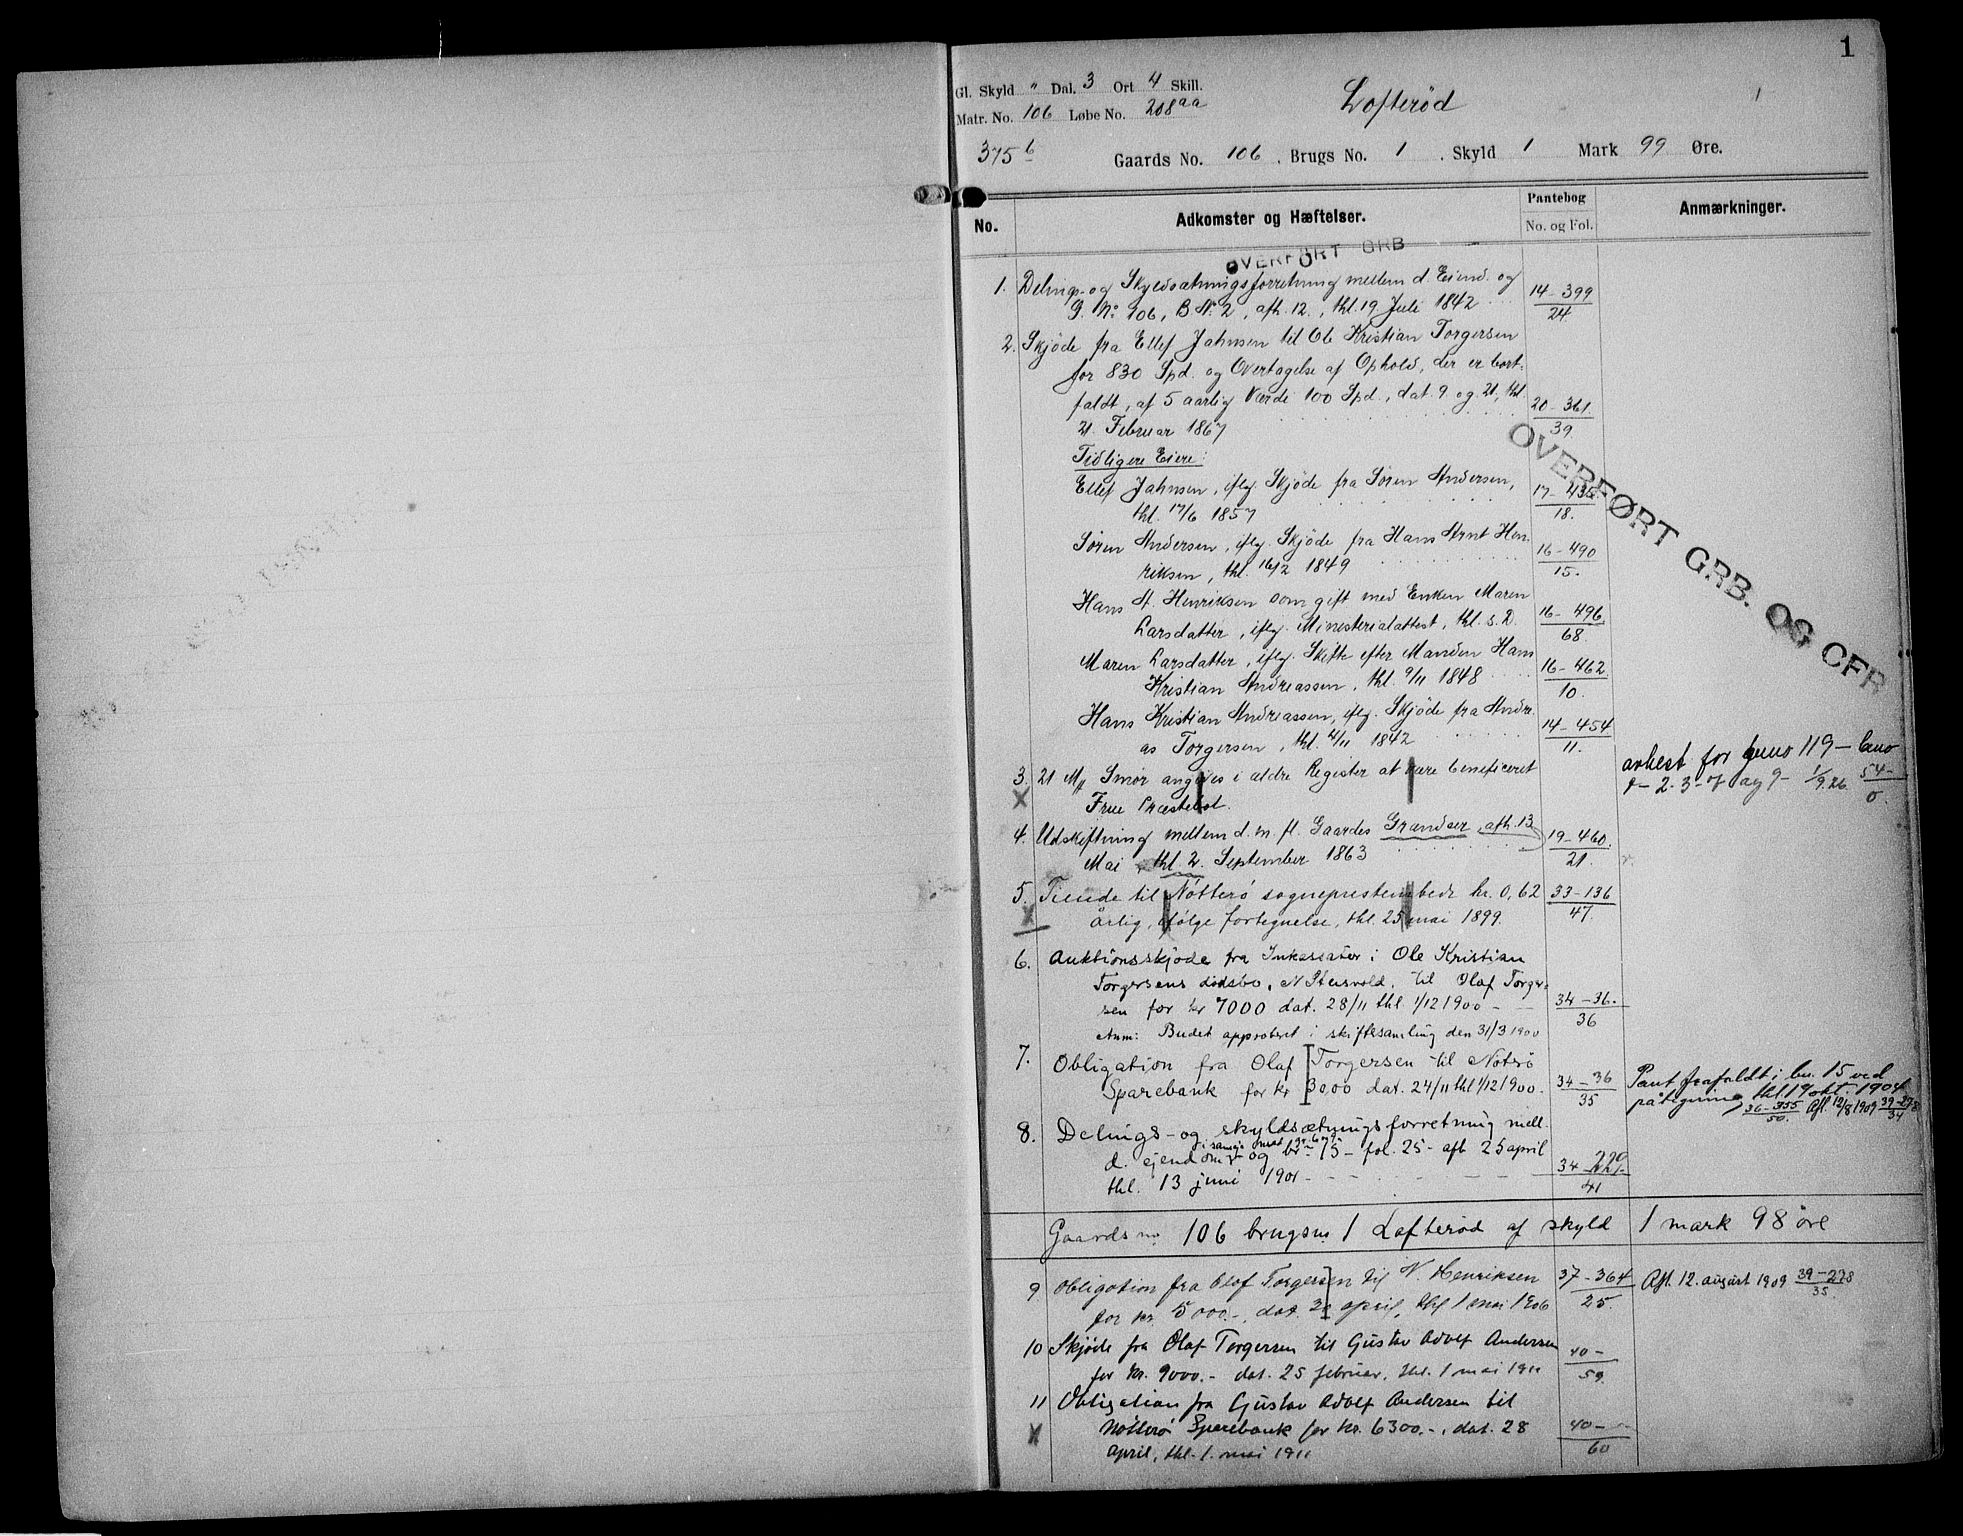 1
Gl. Skyld " Dal. 3 Ort 4 Skill.
Matr. No. 106 Løbe No. 208 aa
Lofterød
375 b Gaards No. 106. Brugs No. 1. Skyld 1 Mark 99 Øre.
No. Adkomster og Hæftelser. Pantebog No. og Fol. Anmærkninger.
OVERFØRT GRB
1. Delings- og Skyldsætningsforretning mellem d. Eiend. og
G. No. 106, B. No. 2, afh. 12., thl. 19 Juli 1842 14-399/24
2. Skjöde fra Ellef Jahnsen til Ole Kristian Torgersen
for 830 Spd. og Overtagelse af Ophold, der er bort-
faldt, af 5 aarlig Værdi 100 Spd., dat. 9 og 21, thl.
21. Februar 1867 20-361/39
Tidligere Eiere:
Ellef Jahnsen, iflg. Skjöde fra Sören Andersen,
thl. 17/6 1857 17-435/18.
Sören Andersen, iflg. Skjöde fra Hans Arnt Hen-
riksen, thl. 16/2 1849 16-490/15.
Hans A. Henriksen som gift med Enken Maren
Larsdatter, iflg. Ministerialattest, thl. s. D. 16-496/68
Maren Larsdatter, iflg. Skifte efter Manden Hans
Kristian Andreassen, thl. 9/11 1848 16-462/10.
Hans Kristian Andreassen, iflg. Skjöde fra Andre-
as Torgersen, thl. 4/11 1842 14-454/11.
OVERFØRT GRB. OG CFR
3. 21 Mk Smör angives i ældre Register at være beneficeret
Frue Præstebol.
arhest for gnno 119 - bno
2-3-7 og 9- 1/9.26 54-/0.
4. Udskiftning mellem d. m. fl. Gaardes Grændser, afh. 13
Mai, thl. 2. September 1863 19-460./21.
5. Tiende til Nötterö sogneprestembede kr. 0,62
årlig, ifölge fortegnelse, thl. 25 mai 1899. 33-136/47.
6. Auktionsskjøde fra Inkassator i Ole Kristian
Torgersens dødsbo, N. til Olaf Torger-
sen for kr 7000 dat. 28/11 thl 1/12 1900 34-36./36
Anm: Budet approberet i skiftesamling den 31/3 1900
7. Obligation fra Olaf Torgersen til Nøterø
Sparebank for kr 3000 dat. 24/11 thl 1/12 1900. 34-36/35
Pant frafaldt i bn. 15 ved
påtegning thl 19 okt. 1904
36-355/50. Afl. 12/8 1909 39-278/34
8. Delings- og skyldsætningsforretning mell.
d. ejendom og bn 15 - fol. 25 - afh 25 april
thl. 13 juni 1901 34-221/41
Gaards no. 106 brugsn. 1 Lofterød af skyld 1 mark 98 øre
9 Obligation fra Olaf Torgersen til N. Henriksen
for kr. 5000.-, dat. 30 april, thl 1 mai 1906 37-364/25. Afl. 12. august 1909 39-278/35.
10 Skjøde fra Olaf Torgersen til Gustav Adolf Andersen
for kr. 9000.- dat. 25 februar, thl. 1 mai 1911 40-/59.
11 Obligation fra Gustav Adolf Andersen til
Nøtterø Sparebank for kr. 6300.-, dat. 28
april, thl. 1. mai 1911 40-/60